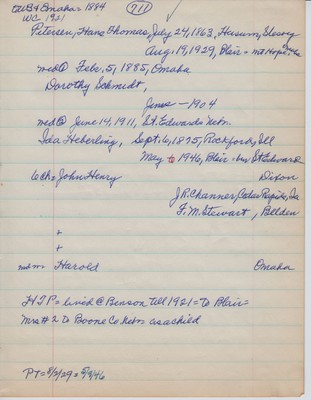 OWB+Omaha=1884 711
WC 1921
Petersen, Hans Thomas, July 24, 1863, Husum, Slesvig
Aug 19, 1929, Blair = Mt Hope,
md① Feb. 5, 1885, Omaha
Dorothy Schmidt,
June — 1904
md② June 14, 1911, St. Edwards Nebr.
Ida Heberling, Sept. 6, 1875, Rockford, Ill
May to 1946, Blair = bu St Edwards
6ch= John Henry Dixon
J.R. Channer, Cedar Rapids, Ia
F.M. Stewart, Belden
+
+
Harold Omaha
HTP = lived @ Benson till 1921 = To Blair =
Mrs # 2 to Boone Co Nebr as a child
PT = 8/2/29 = 5/9/46